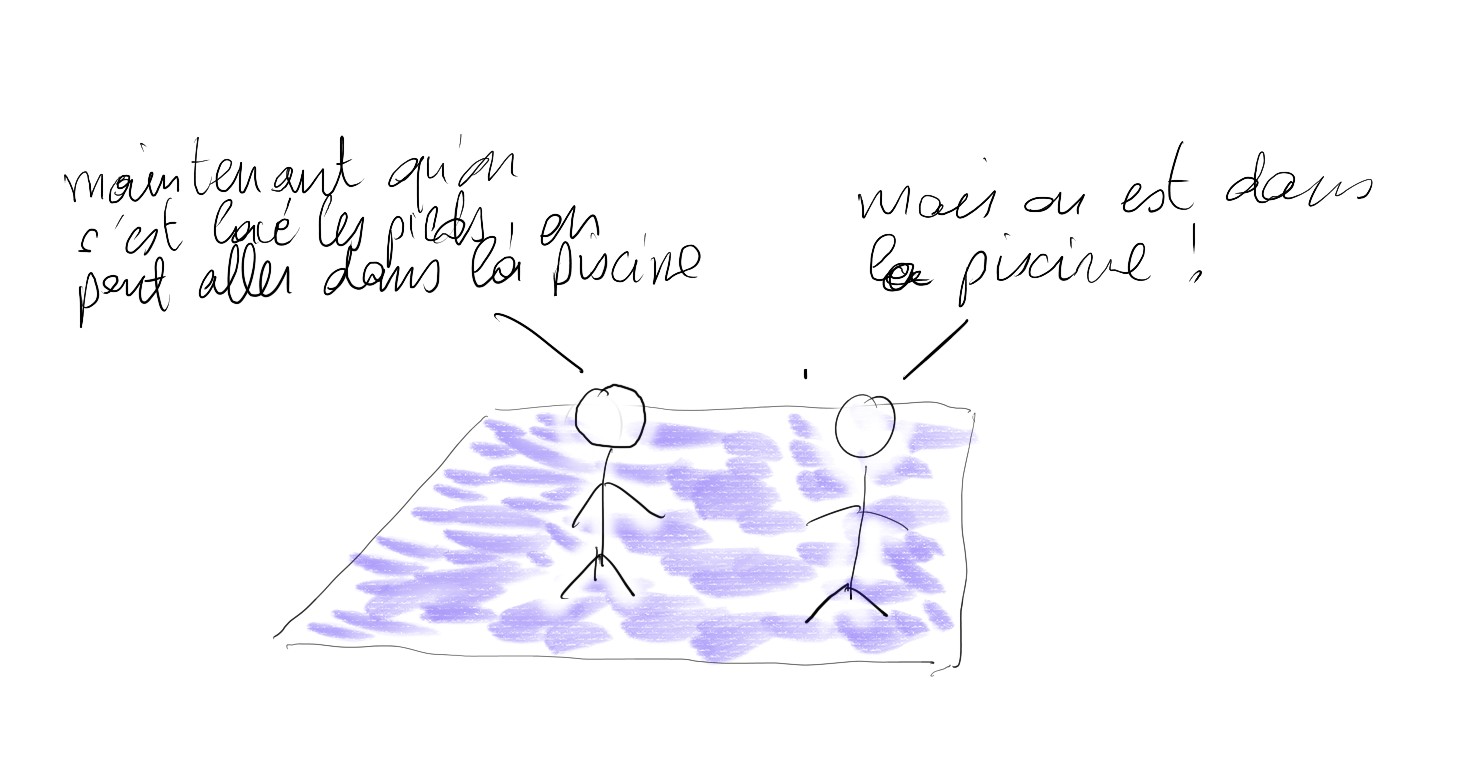 maintenant qu'on
s'est lavé les pieds, on
peut aller dans la piscine
mais on est dans
la piscine !